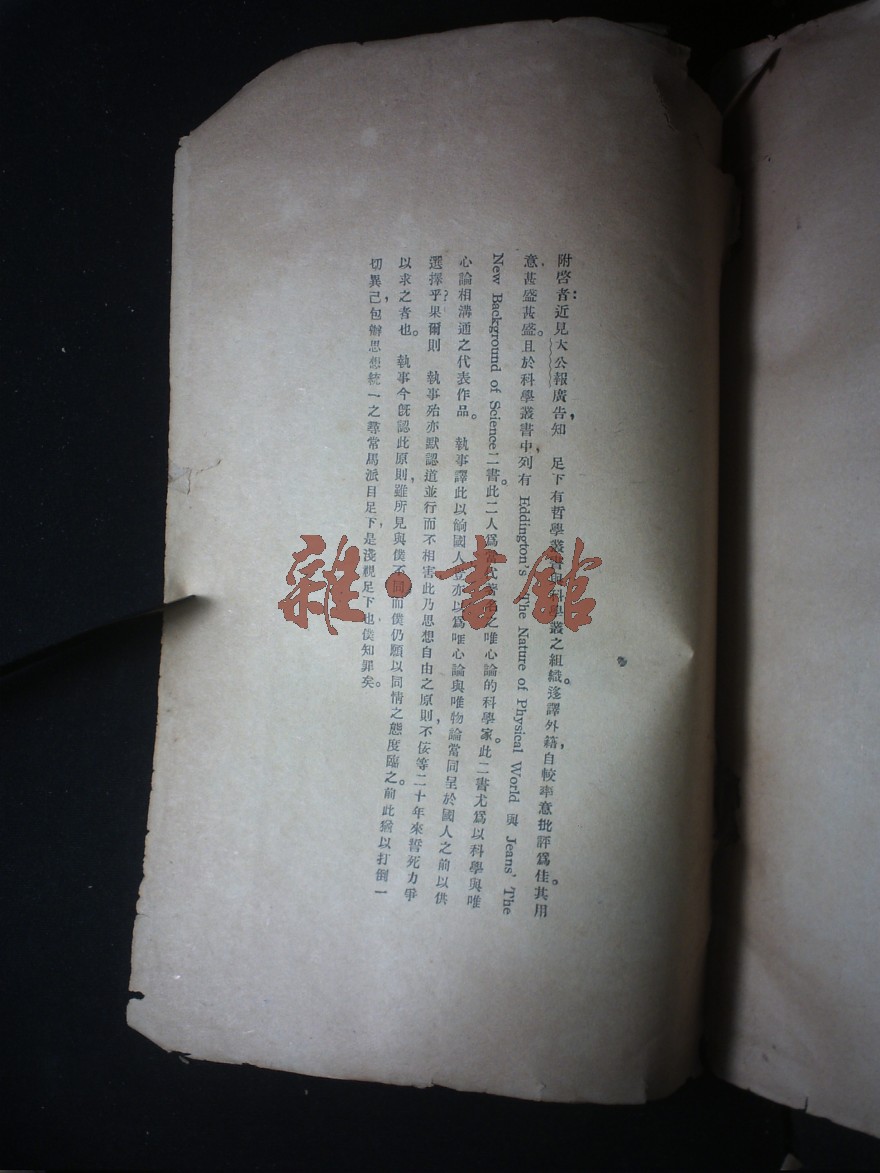 附啓者：近見大公報廣告，知　足下有哲學叢書與科學叢之組織。迻譯外籍，自較率意批評爲佳。其用
意甚盛甚盛。且於科學叢書中列有 Eddington's The Nature of Physical World 與 Jeans' The
New Background of Science二書。此二人爲當代著名之唯心論的科學家。此二書尤爲以科學與唯
心論相溝通之代表作品。　執事譯此以餉國人，豈亦以爲唯心論與唯物論當同呈於國人之前以供
選擇乎？果爾則　執事殆亦默認道並行而不相害，此乃思想自由之原則，不佞等二十年來誓死力爭
以求之者也。　執事今旣認此原則，雖所見與僕不同，而僕仍願以同情之態度臨之。前此猶以打倒一
切異己，包辦思想統一之尋常馬派目足下，是淺視足下也。僕知罪矣。
雜·書館